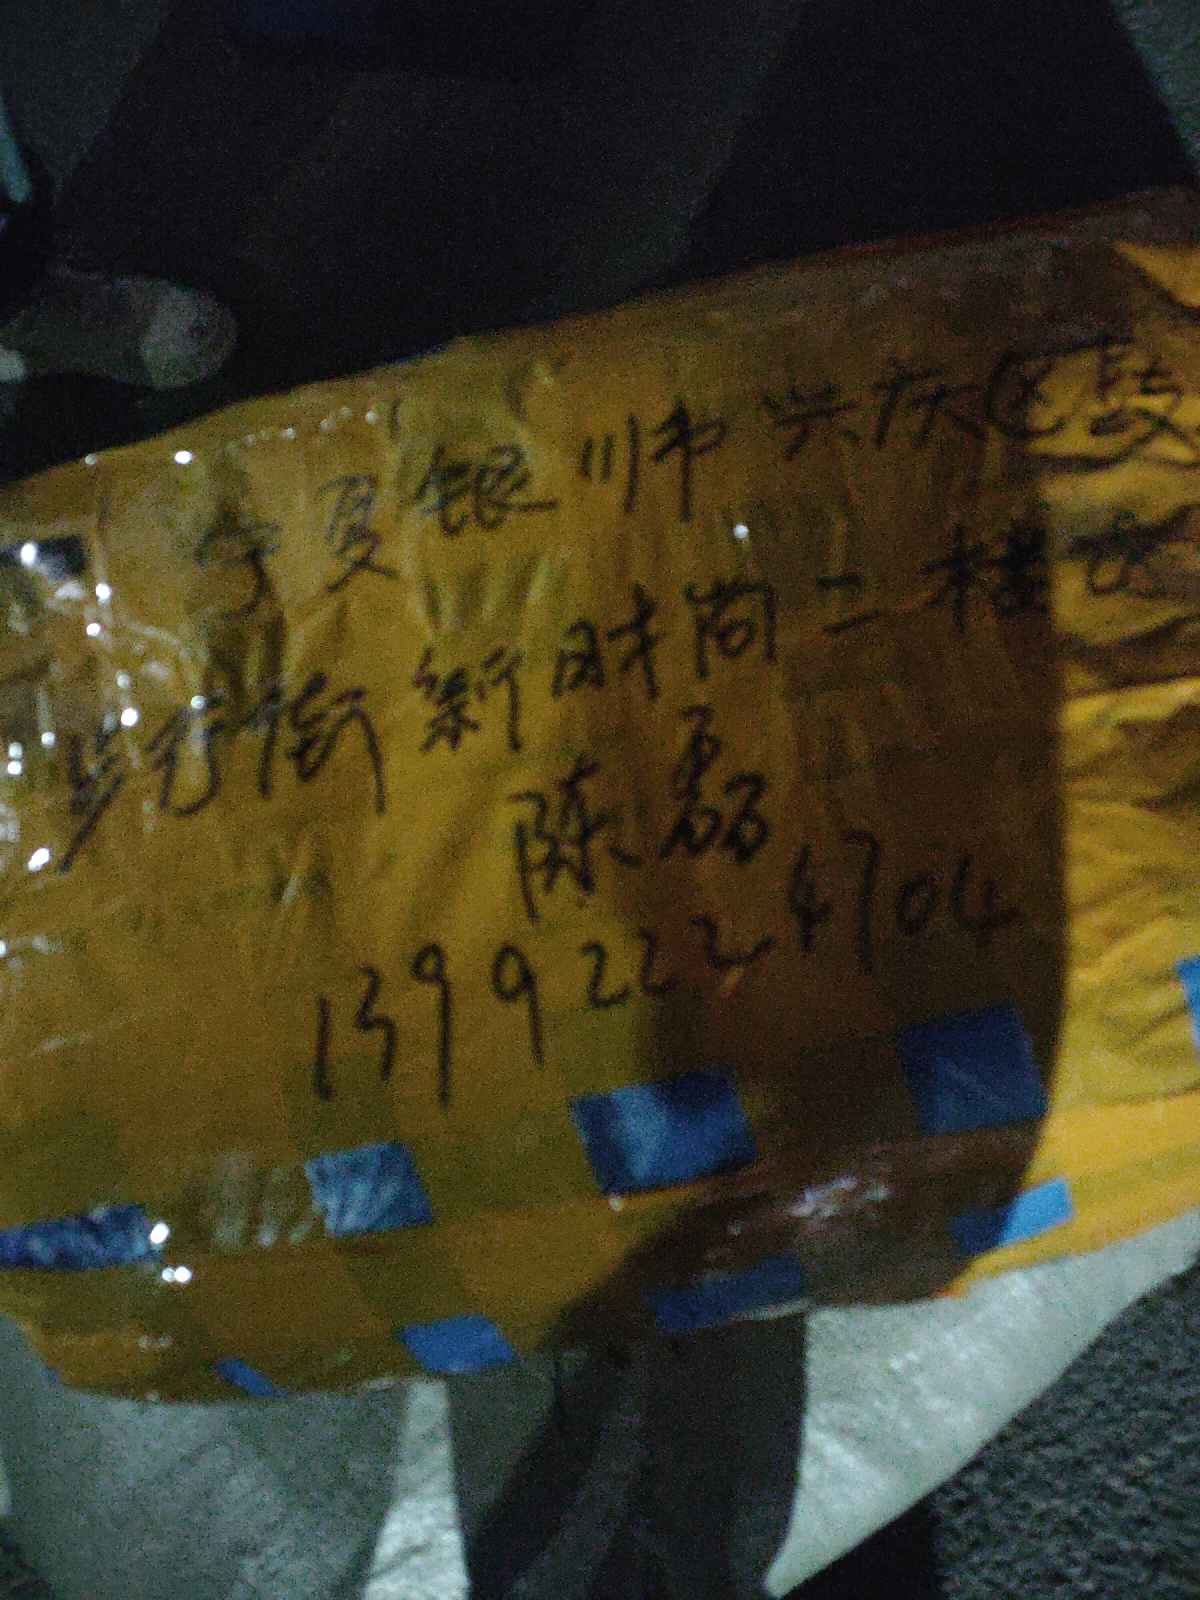 宁夏银川市兴庆区鼓
步行街新时尚二楼
陈磊
13992224704